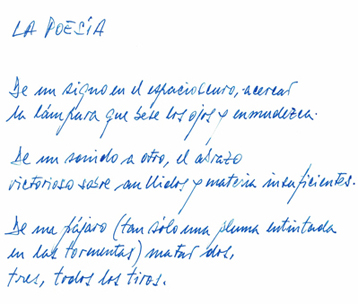 LA POESÍA
De un signo en el espacio oscuro, acercar
la lámpara que bese los ojos y enmudezca.
De un sonido a otro, el abrazo
victorioso sobre aullidos y materia insuficientes.
De un pájaro (tan sólo una pluma entintada
en las tormentas) matar dos,
tres, todos los tiros.